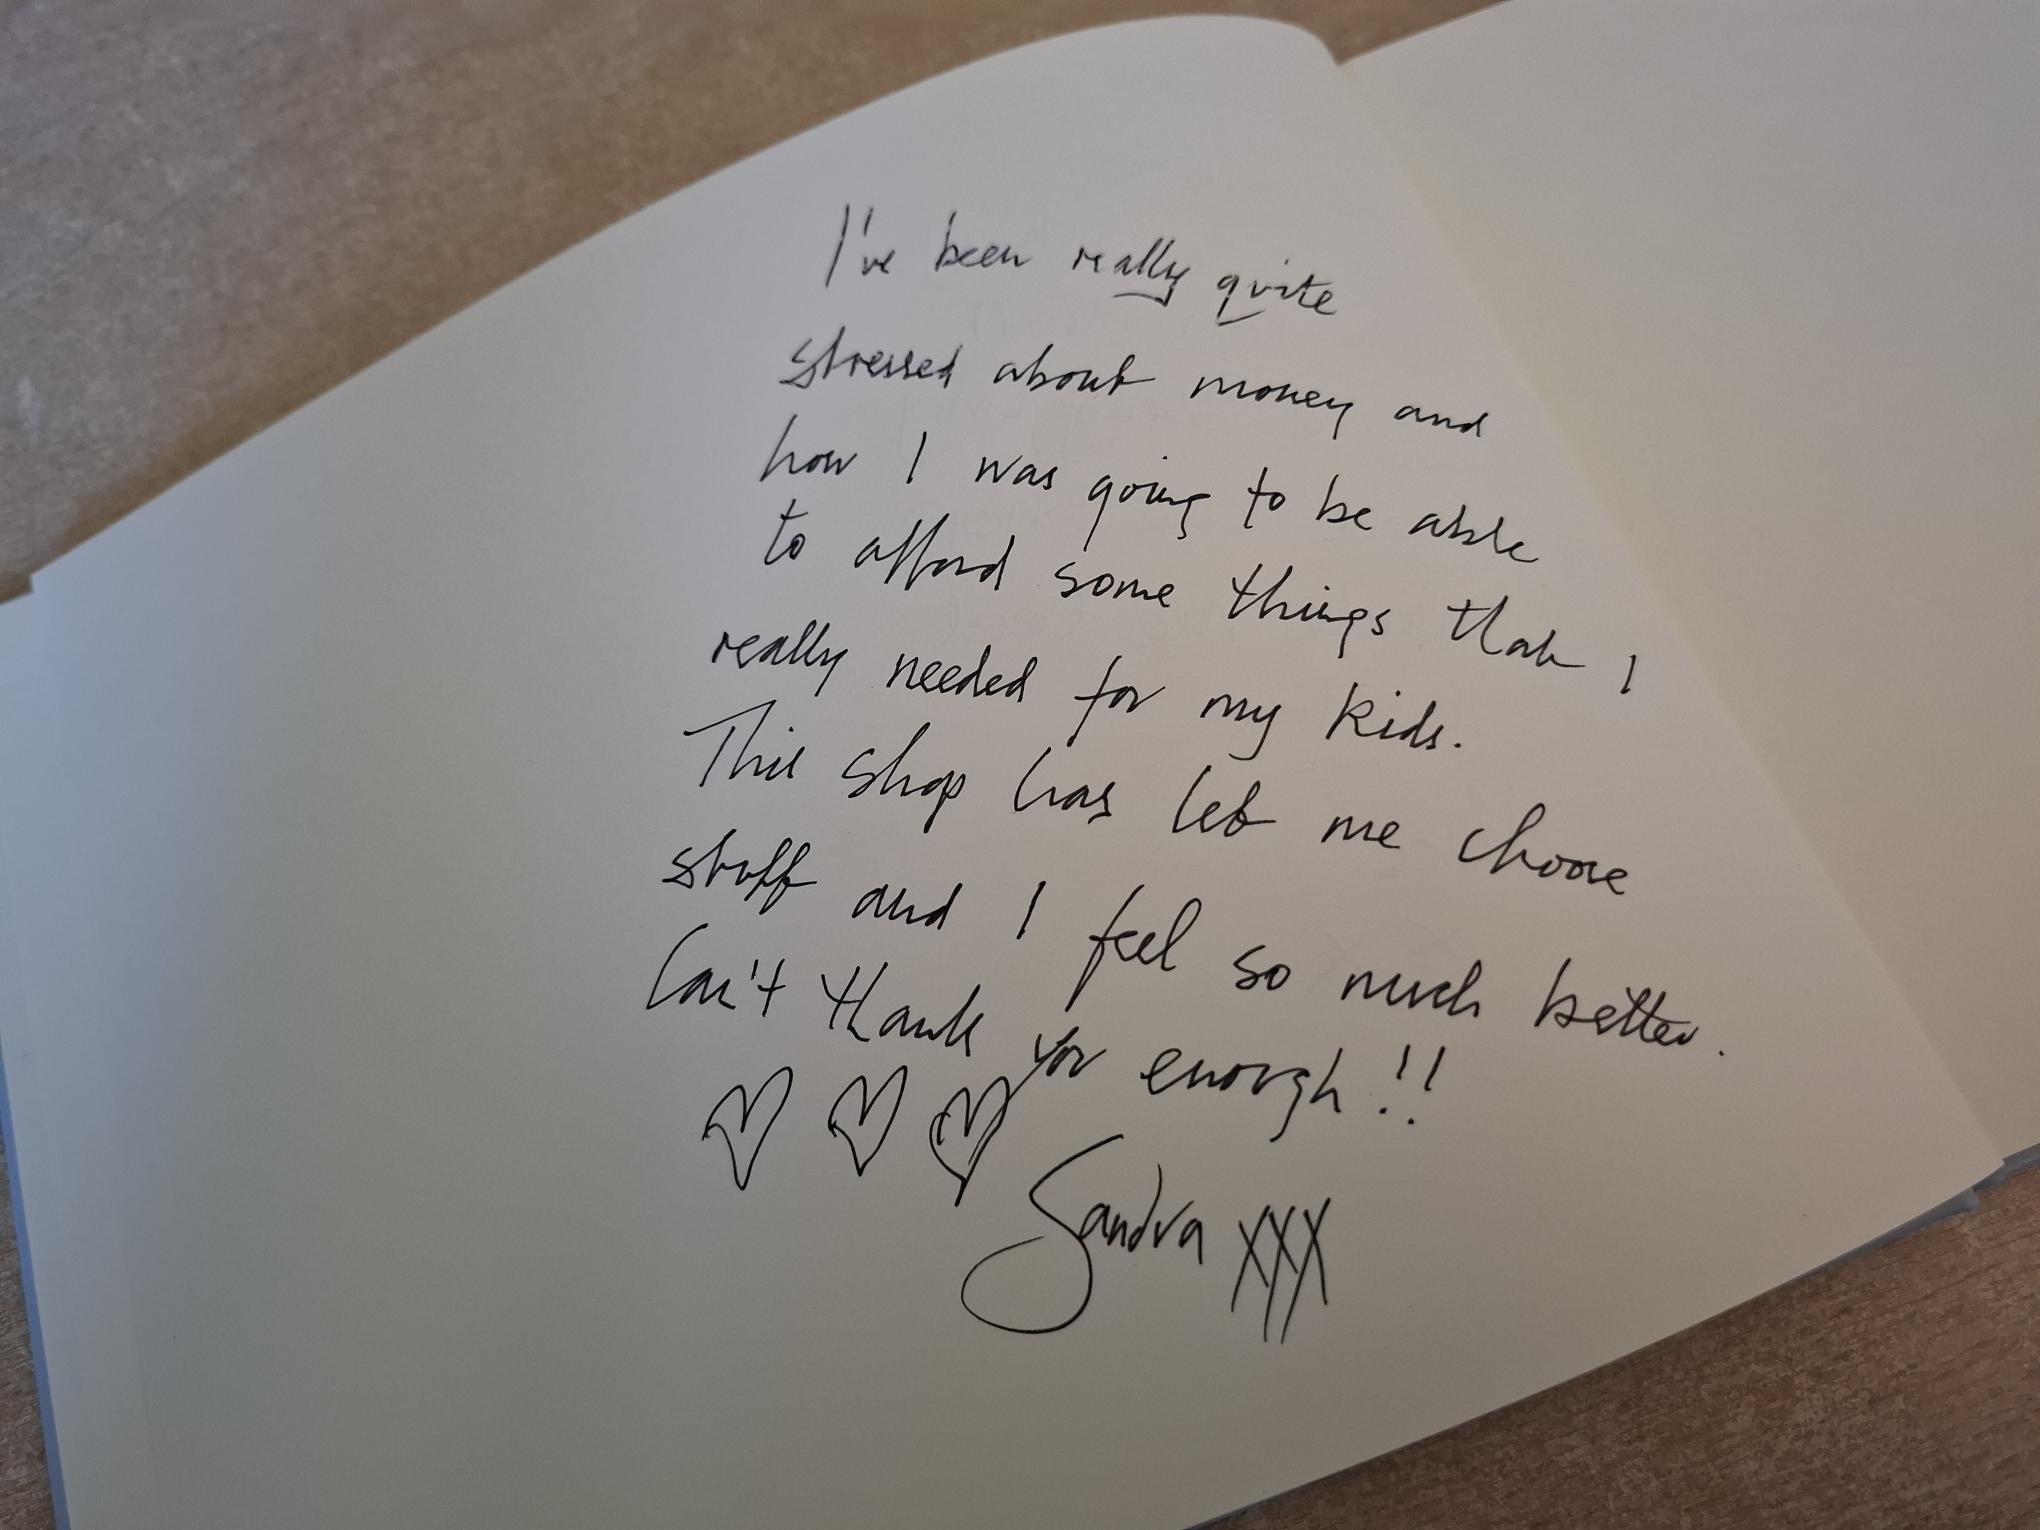 I've been really quite
stressed about money and
how I was going to be able
to afford some things that I
really needed for my kids.
This shop has let me choose
stuff and I feel so much better.
Can't thank you enough!!
Sandra xxx